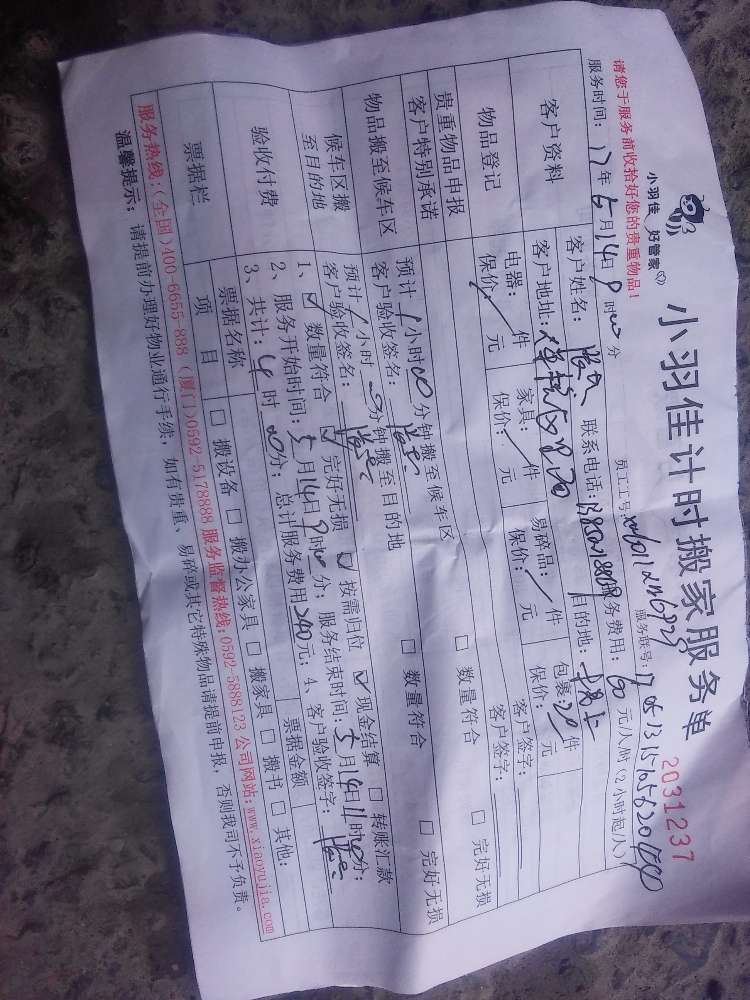 小羽佳 好管家
小羽佳计时搬家服务单
2031237
请您于服务前收拾好您的贵重物品!
员工工号:
服务联号:
服务时间: 17年 5月14日 9时00分
服务费用: 60元/人/时(2小时起/人)
客户资料
客户姓名: 联系电话:
客户地址: 目的地:
物品登记
电器: / 件 家具: / 件 易碎品: / 件 包裹: 件
保价: / 元 保价: / 元 保价: / 元 保价: 元
贵重物品申报
客户签字:
客户特别承诺
客户签字:
物品搬至候车区
预计 1 小时00分钟搬至候车区 □ 数量符合 □ 完好无损
客户验收签名:
候车区搬至目的地
预计 1 小时 分钟搬至目的地 □ 数量符合 □ 完好无损
客户验收签名:
验收付费
1、☑ 数量符合 ☑ 完好无损 ☑ 按需归位 ☑ 现金结算 □ 转账汇款
2、服务开始时间: 5月14日9时00分; 服务结束时间: 5月14日11时00分;
3、共计: 4时00分; 总计服务费用240元; 4、客户验收签字:
票据栏
票据名称 票据金额
项目 □ 搬设备 □ 搬办公家具 □ 搬家具 □ 搬书 □ 其他:
服务热线:(全国)400-6655-888 (厦门)0592-5178888 服务监督热线:0592-5888123 公司网站:www.xiaoyujia.com
温馨提示: 请提前办理好物业通行手续, 如有贵重、易碎或其它特殊物品请提前申报, 否则我司不予负责。